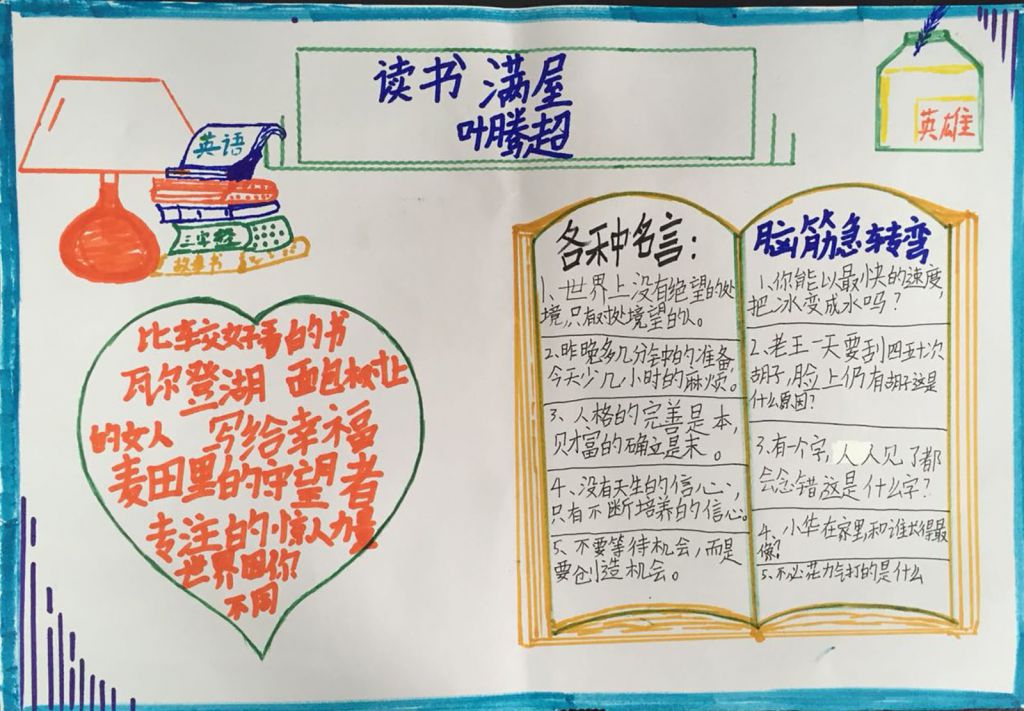 读书满屋
叶腾超
英雄
英语
三字经
故事书
比较好看的书
瓦尔登湖 面包树上
的女人 写给幸福
麦田里的守望者
专注的惊人力量
世界因你
不同
各种名言：
1、世界上没有绝望的处
境，只有对处境望的人。
2、昨晚多几分钟的准备，
今天少几小时的麻烦。
3、人格的完善是本，
财富的确立是末。
4、没有天生的信心，
只有不断培养的信心。
5、不要等待机会，而是
要创造机会。
脑筋急转弯
1、你能以最快的速度，
把冰变成水吗？
2、老王一天要刮四五十次
胡子，脸上仍有胡子这是
什么原因？
3、有一个字，人人见了都
会念错这是什么字？
4、小华在家里，和谁长得最
像？
5、不必花力气打的是什么